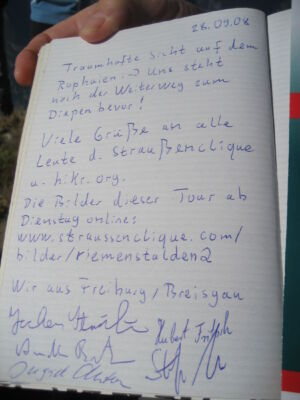 28.09.08
Traumhafte Sicht auf dem
Rophaien → Uns steht
noch der Weiterweg zum
Diepen bevor!
Viele Grüße an alle
Leute d. Straußenclique
u. hikr.org.
Die Bilder dieser Tour ab
Dienstag online:
www.straussenclique.com/
bilder/riemenstalden2
Wir aus Freiburg/Breisgau
Hubert